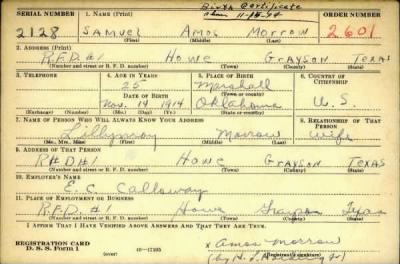 Birth Certificate
SERIAL NUMBER 1. NAME (Print) ORDER NUMBER
2128 SAMUEL AMOS MORROW 2601
(First) (Middle) (Last)
2. ADDRESS (Print)
R.F.D #1 HOWE GRAYSON TEXAS
(Number and street or R. F. D. number) (Town) (County) (State)
3. TELEPHONE 4. AGE IN YEARS 5. PLACE OF BIRTH 6. COUNTRY OF CITIZENSHIP
25 Marshall
DATE OF BIRTH (Town or county)
Nov. 19 1914 Oklahoma U.S.
(Exchange) (Number) (Mo.) (Day) (Yr.) (State or country)
7. NAME OF PERSON WHO WILL ALWAYS KNOW YOUR ADDRESS 8. RELATIONSHIP OF THAT PERSON
Morrow Wife
(Mr., Mrs., Miss) (First) (Middle) (Last)
9. ADDRESS OF THAT PERSON
#1 HOWE GRAYSON TEXAS
(Number and street or R. F. D. number) (Town) (County) (State)
10. EMPLOYER'S NAME
E. C. Calloway
11. PLACE OF EMPLOYMENT OR BUSINESS
R.F.D. #1 Howe Grayson Texas
(Number and street or R. F. D. number) (Town) (County) (State)
I AFFIRM THAT I HAVE VERIFIED ABOVE ANSWERS AND THAT THEY ARE TRUE.
REGISTRATION CARD
D. S. S. Form 1 (over) 16-17105 x Amos Morrow
(Registrant's signature)